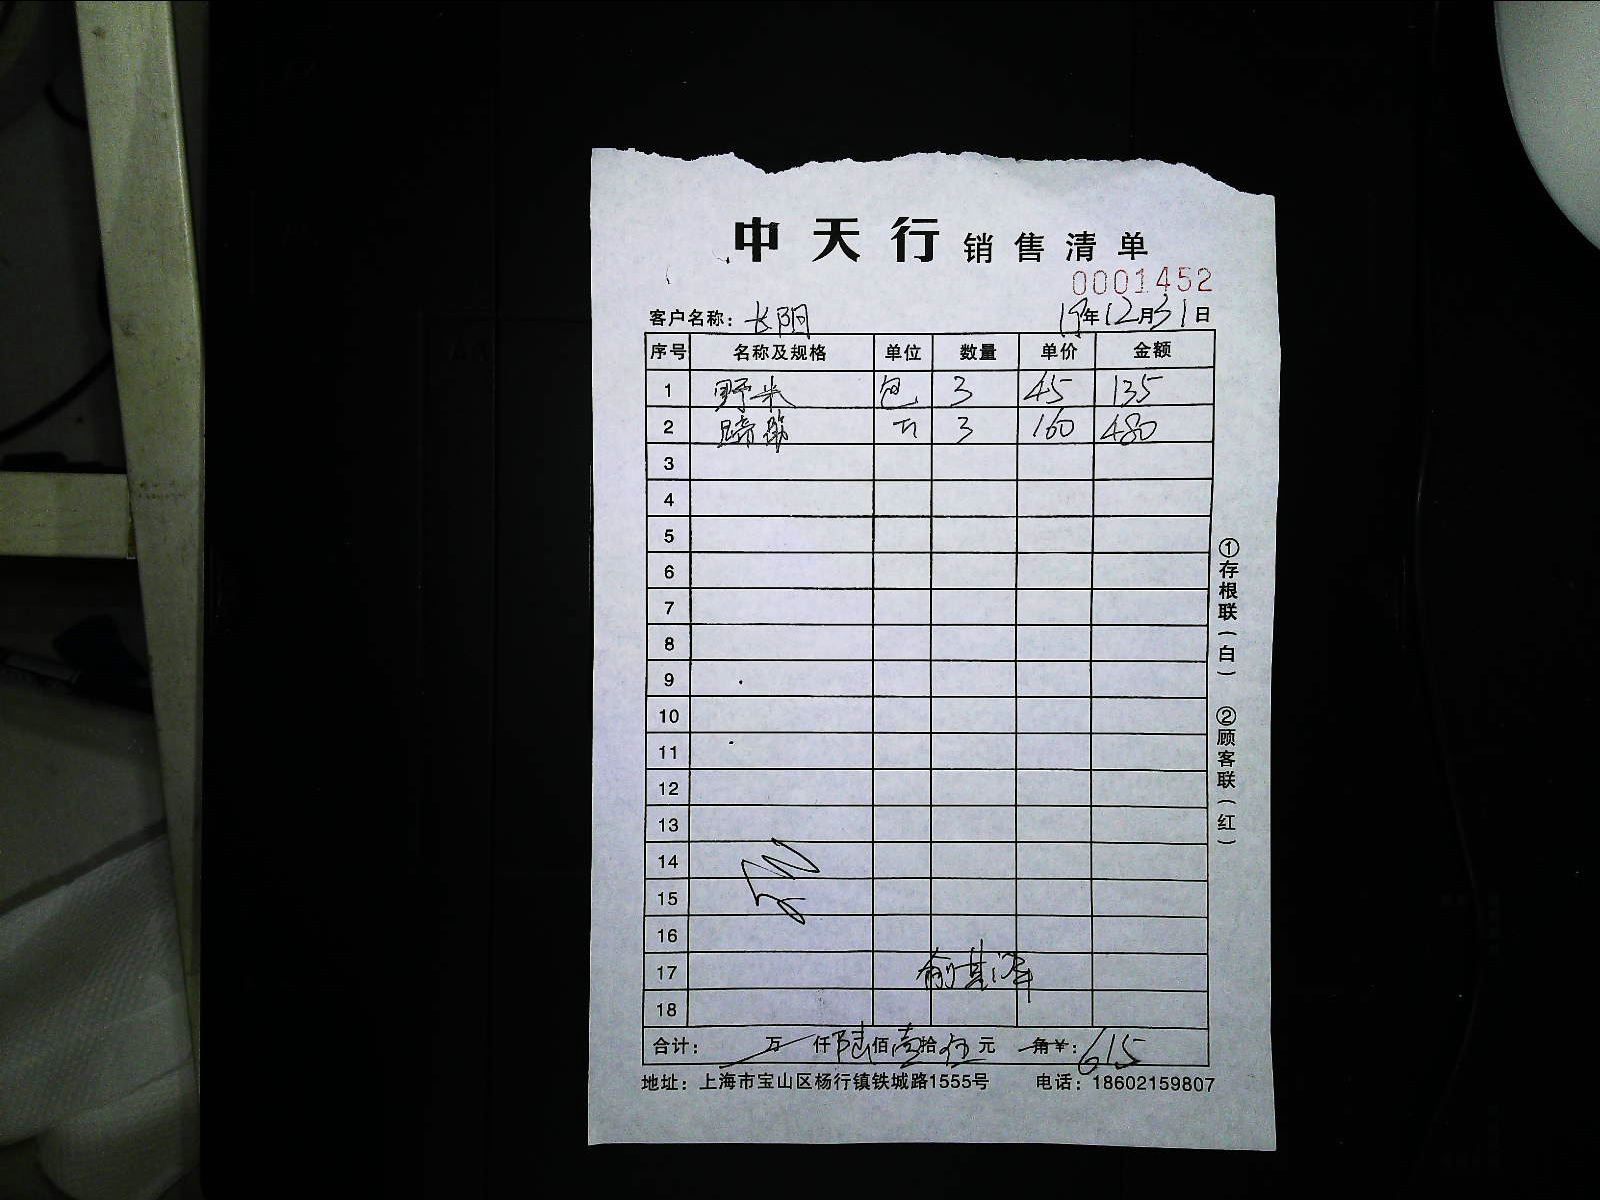 中天行 销售清单
0001452
客户名称： 长阳 19年12月31日
序号 名称及规格 单位 数量 单价 金额
1 野米 包 3 45 135
2 3 160 480
3
4
5
6
7
8
9
10
11
12
13
14
15
16
17
18
合计： 万 仟陆佰壹拾伍元 角￥：615
地址：上海市宝山区杨行镇铁城路1555号 电话：18602159807
①存根联（白）
②顾客联（红）